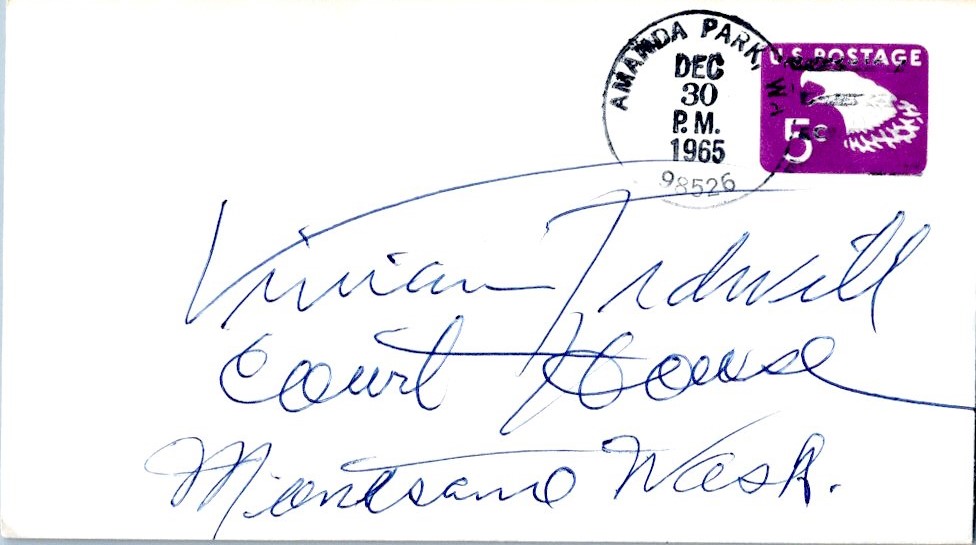 AMANDA PARK, WA
DEC
30
P.M.
1965
98526
U.S. POSTAGE
5c
Vivian Tidwill
Court House
Montesano Wash.